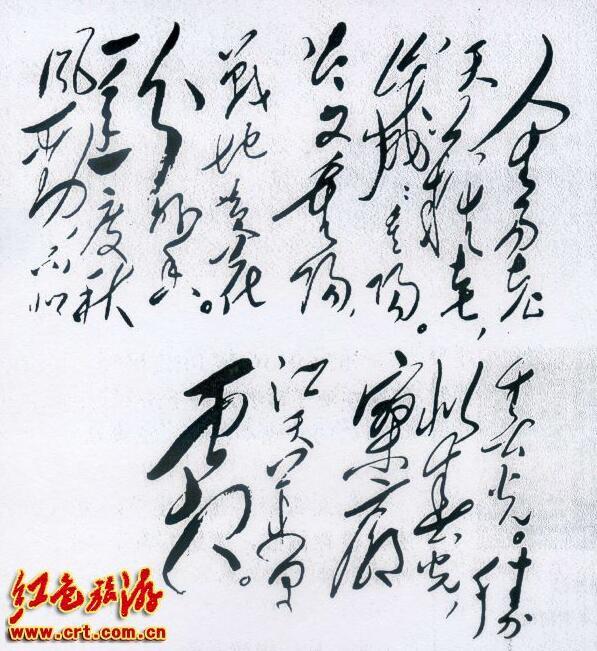 人生易老
天難老,
歲々重陽。
今又重陽,
戰地黄花
分外香。
一年一度秋
風勁,不似
春光。勝
似春光,
寥廓
江天萬里
霜。
红色旅游
www.crt.com.cn